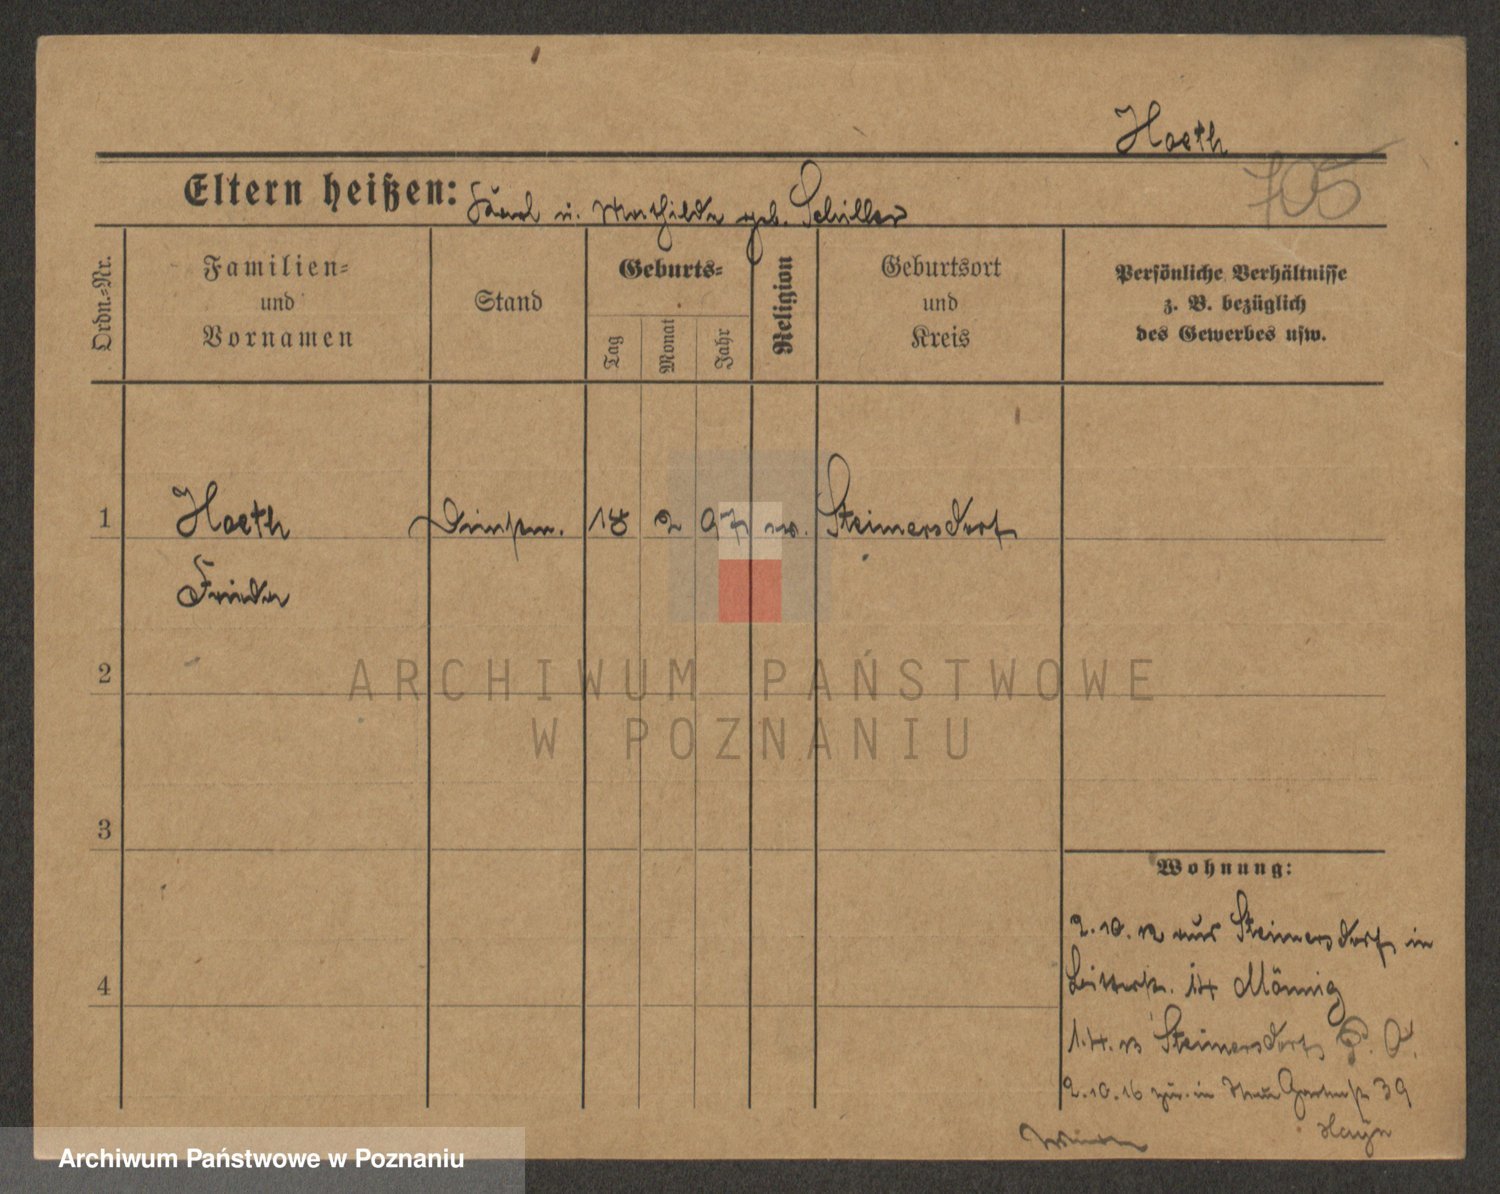 Hoeth
105
Eltern heißen: Karl u. Mathilde geb. Schiller
Ordn.-Nr.
Familien-
und
Vornamen
Stand
Geburts-
Tag
Monat
Jahr
Religion
Geburtsort
und
Kreis
Persönliche Verhältnisse
z. B. bezüglich
des Gewerbes usw.
1
Hoeth
18
2
97
ev.
Steinersdorf
Frieda
2
3
4
Wohnung:
2.10.12 aus Steinersdorf in
14 Männig
1.4.13 Steinersdorf
2.10.16 zur. in Neue Gartenstr 39
Hayn
ARCHIWUM PAŃSTWOWE
W POZNANIU
Archiwum Państwowe w Poznaniu